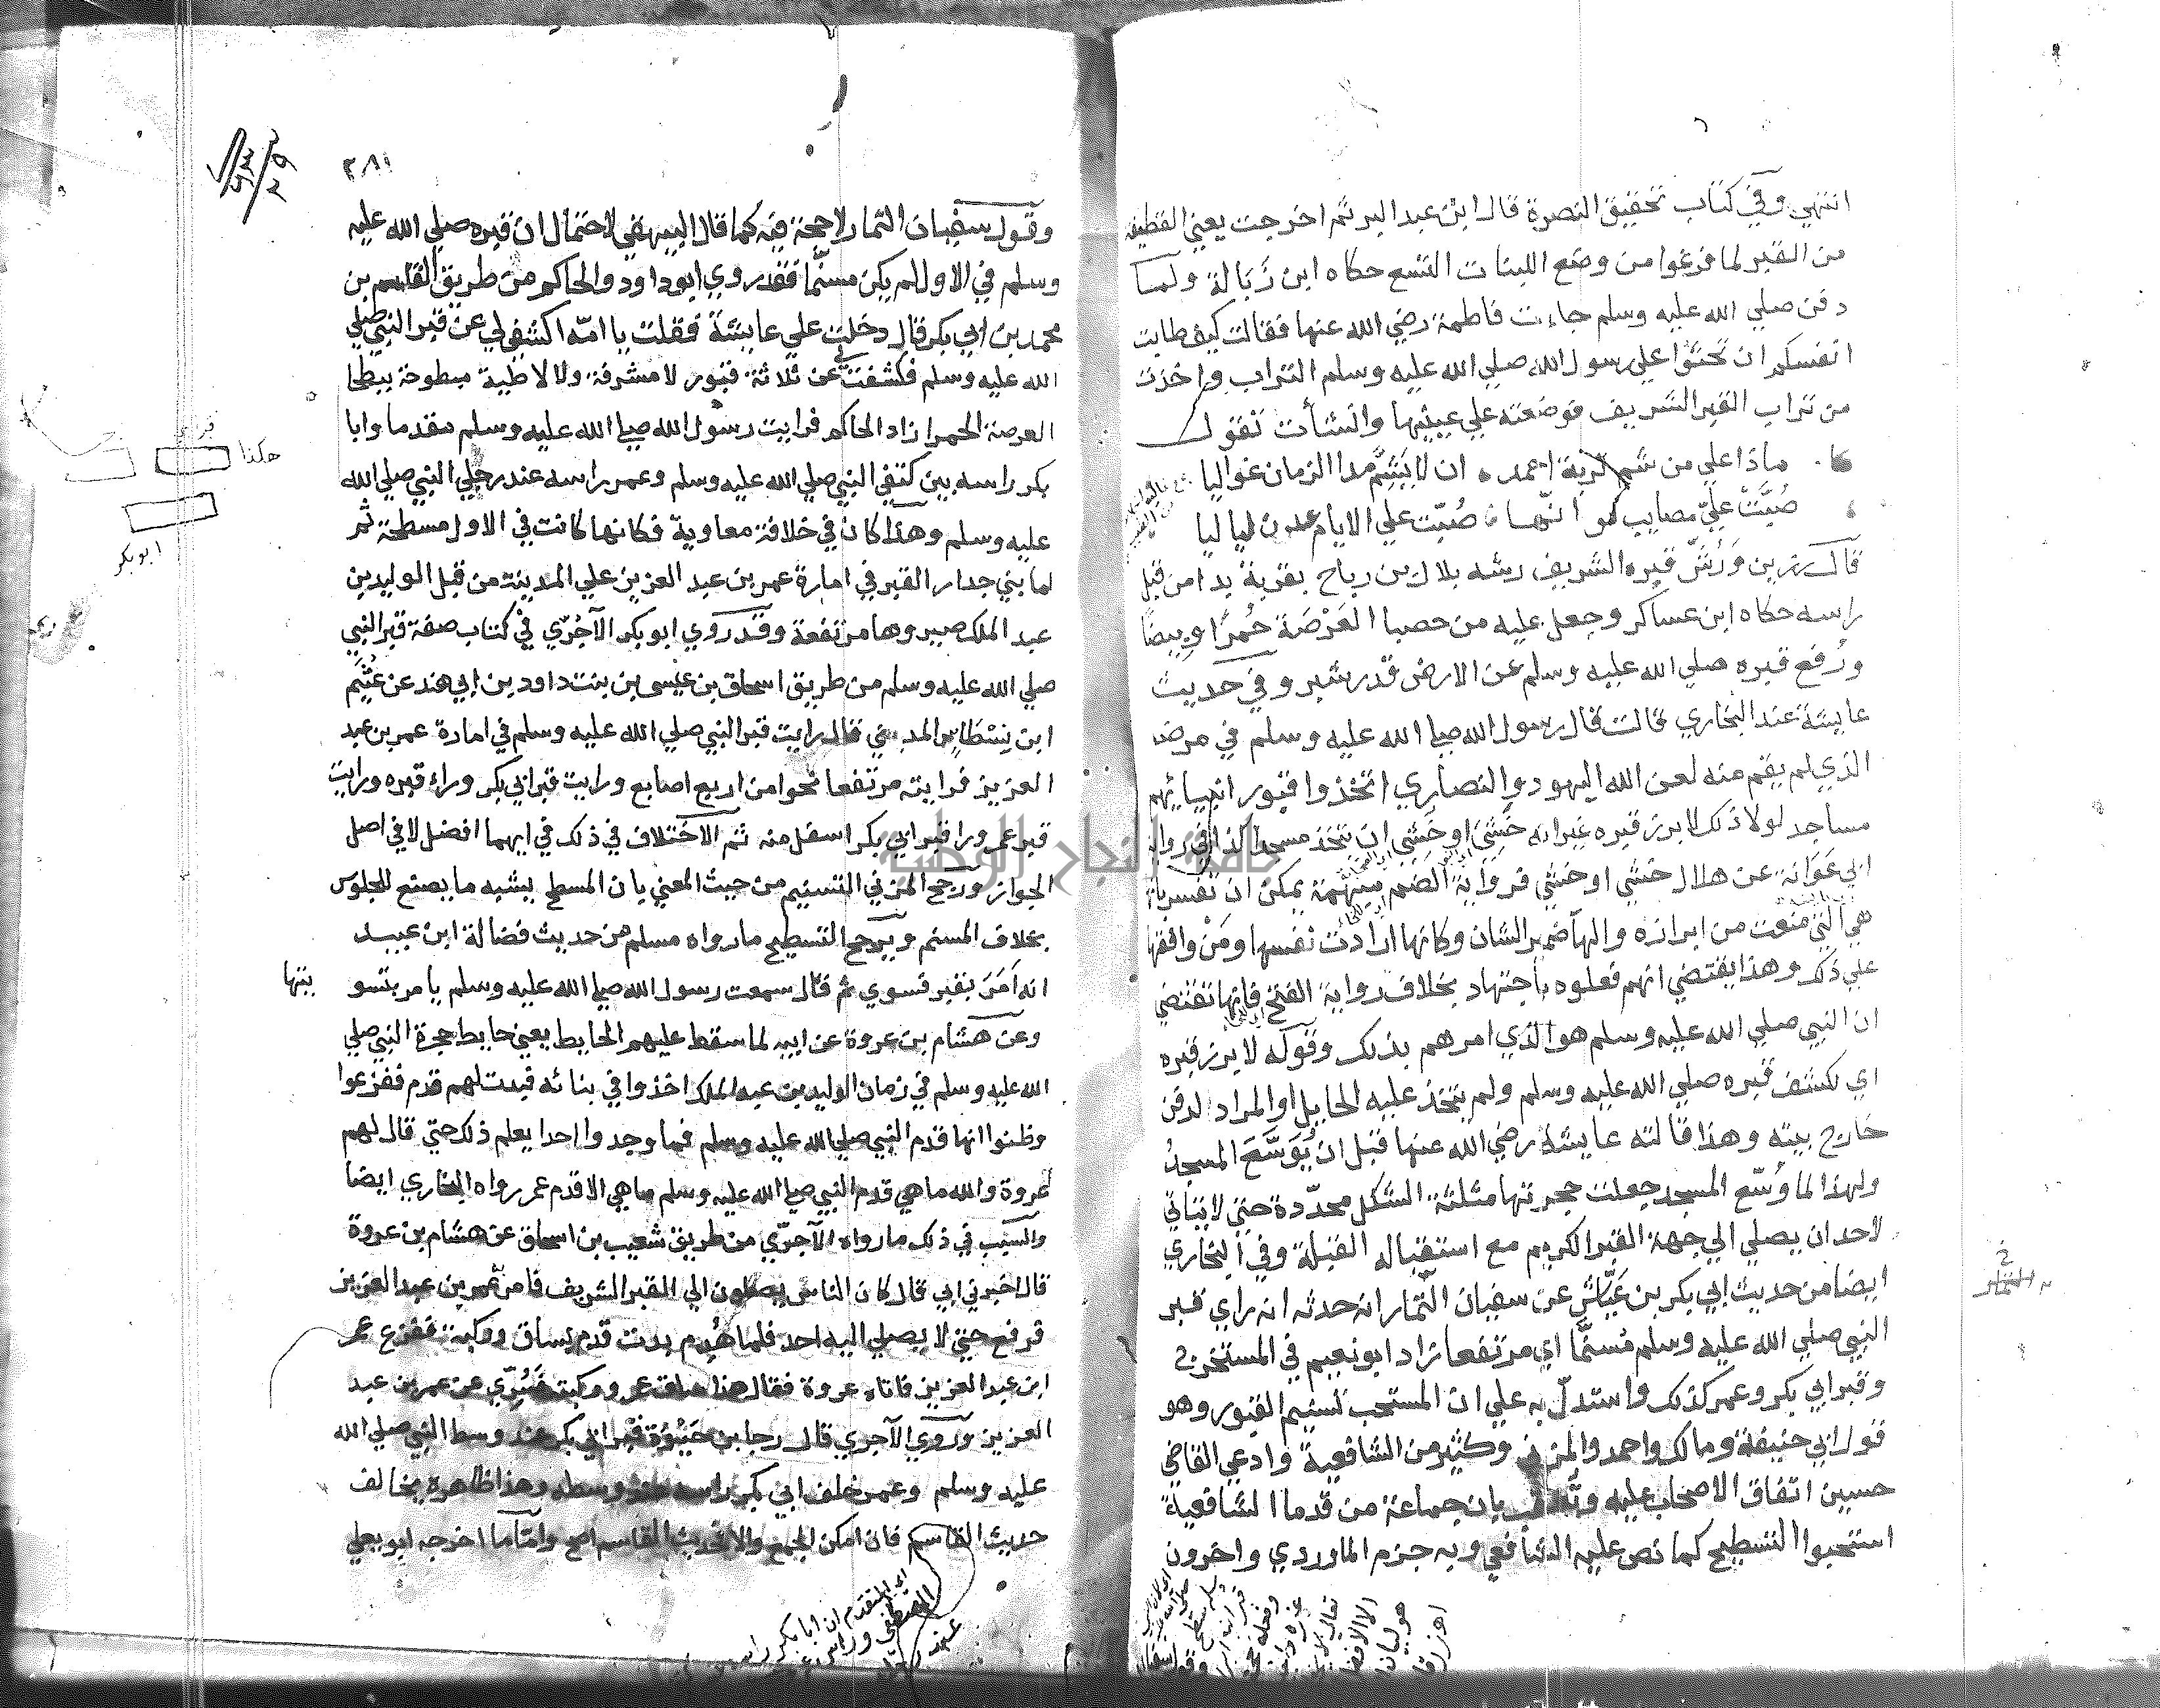 انتهي وفي كتاب تحقيق النصرة قال ابن عبد البر ثم اخرجت يعني القطيفة
من القبر لما فرغوا من وضع اللبنات التسع حكاه ابن زَبَالة ولما
دفن صلي الله عليه وسلم جاءت فاطمة رضي الله عنها فقالت كيف طابت
انفسكم ان تحثوا علي رسول الله صلي الله عليه وسلم التراب واخذت
من تراب القبر الشريف فوضعته علي عينيها وانشأت تقول
ماذا علي من شم تربة احمد ان لا يَشَمَّ مدا الزمان غواليا
صُبَّتْ عليّ مصايب لو انّها صُبّت علي الايام عدن لياليا
قال رزين وَرُشّ قبره الشريف رشه بلال بن رباح بقربة بدا من قبل
راسه حكاه ابن عساكر وجعل عليه من حصبا العَرْصَة حُمرًا وبيضًا
ورُفع قبره صلي الله عليه وسلم عن الارض قدر شبر وفي حديث
عايشة عند البخاري قالت قال رسول الله صلي الله عليه وسلم في مرضه
الذي لم يقم منه لعن الله اليهود والنصاري اتخذوا قبور انبيايهم
مساجد لولا ذلك لابرز قبره غير انه خَشِيَ او خُشِيَ ان يتخذ مسجدا كذا في رواية
ابي عَوَانة عن هلال خشي او خشي فروَاية الضم مبهمة يمكن ان تفسر بان
هي التي منعت من ابرازه والهآ ضمير الشان وكانها ارادت نفسها ومَنْ وافقها
علي ذلك وهذا يقتضي انهم فعلوه باجتهاد بخلاف رواية الفتح فانها تقتضي
ان النبي صلي الله عليه وسلم هو الذي امرهم بذلك وقوله لابرز قبره
اي لكشف قبره صلي الله عليه وسلم ولم يتخذ عليه الحايل او المراد لدفن
خارج بيته وهذا قالته عايشة رضي الله عنها قبل ان يُوَسَّعَ المسجدُ
ولهذا لما وُسّع المسجد جعلت حجرتها مثلثة الشكل محدّدة حتي لا يتاتي
لاحد ان يصلي الي جهة القبر الكريم مع استقباله القبلة وفي البخاري
ايضا من حديث ابي بكر بن عَيّاش عن سفيان التمّار انه حدثه انه راي قبر
النبي صلي الله عليه وسلم مُسنَّمًا اي مرتفعا زاد ابو نعيم في المستخرج
وقبر ابي بكر وعمر كذلك واستدلّ به علي ان المستحب تسنيم القبور وهو
قول ابي حنيفة ومالك واحمد والمزني وكثير من الشافعية وادعي القاضي
حسين اتفاق الاصحاب عليه وتُعقّب بان جماعة من قدما الشافعية
استحبوا التسطيح كما نص عليه الشافعي وبه جزم الماوردي واخرون
٢٨١
وقول سفيان التمار لا حجة فيه كما قال البيهقي لاحتمال ان قبره صلي الله عليه
وسلم في الاول لم يكن مسنَّمًا فقد روي ابو داود والحاكم من طريق القاسم بن
محمد بن ابي بكر قال دخلت علي عايشة فقلت يا امّه اكشفي لي عن قبر النبي صلي
الله عليه وسلم فكشفت لي عن ثلاثة قبور لا مشرفة ولا لاطية مبطوحة ببطحا
العرصة الحمرا زاد الحاكم فرايت رسول الله صلي الله عليه وسلم مقدما وابا
بكر راسه بين كتفي النبي صلي الله عليه وسلم وعمر راسه عند رجلي النبي صلي الله
عليه وسلم وهذا كان في خلافة معاوية فكانها كانت في الاول مسطحة ثم
لما بني جدار القبر في امارة عمر بن عبد العزيز علي المدينة من قبل الوليد بن
عبد الملك صيروها مرتفعة وقد روي ابو بكر الآجُرّي في كتاب صفة قبر النبي
صلي الله عليه وسلم من طريق اسحاق بن عيسي بن بنت داود بن ابي هند عن عُثَيم
ابن نِسْطَاس المديني قال رايت قبر النبي صلي الله عليه وسلم في امارة عمر بن عبد
العزيز فرايته مرتفعا نحوا من اربع اصابع ورايت قبر ابي بكر ورآء قبره ورايت
قبر عمر ورا قبر ابي بكر اسفل منه ثم الاختلاف في ذلك في ايهما افضل لا في اصل
الجواز ورجح المزني التسنيم من حيث المعني بان المسطح يشبه ما يصنع للجلوس
بخلاف المسنم ويرجح التسطيح ما رواه مسلم من حديث فضالة ابن عبيد
انه امَرَ بقبر فسوي ثم قال سمعت رسول الله صلي الله عليه وسلم يامر بتسو
يتها
وعن هشام بن عروة عن ابيه لما سقط عليهم الحايط يعني حايط حجرة النبي صلي
الله عليه وسلم في زمان الوليد بن عبد الملك اخذوا في بنائه فبدت لهم قدم ففزعوا
وظنوا انها قدم النبي صلي الله عليه وسلم فما وجدوا احدا يعلم ذلك حتي قال لهم
عروة والله ما هي قدم النبي صلي الله عليه وسلم ما هي الا قدم عمر رواه البخاري ايضا
والسبب في ذلك ما رواه الآجرّي من طريق شعيب بن اسحاق عن هشام بن عروة
قال اخبرني ابي قال كان الناس يصلون الي القبر الشريف فامر عمر بن عبد العزيز
فرفع حتي لا يصلي اليه احد فلما هُدم بدت قدم بساق وركبة ففزع عمر
ابن عبد العزيز فاتاه عروة فقال هذا ساق عمر وركبته فسُرّي عن عمر بن عبد
العزيز وروي الآجري قال رجا بن حَيْوَة قبر ابي بكر عند وسط النبي صلي الله
عليه وسلم وعمر خلف ابي بكر راسه عند وسطه وهذا ظاهره يخالف
حديث القاسم فان امكن الجمع والا فحديث القاسم اصح وامّا ما اخرجه ابو يعلي
هكذا
ابوبكر
جامعة النجاح الوطنية